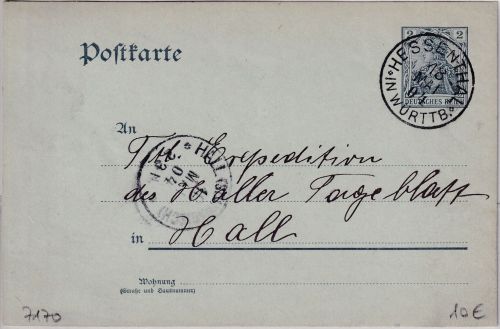 Postkarte
2 2
DEUTSCHES REICH
HESSENTHAL
IN WÜRTTB.
18
MAI
04
An
Tit. Expedition
des Haller Tageblatt
in Hall
HALL
MAI
04
Wohnung
(Straße und Hausnummer)
7170
10€